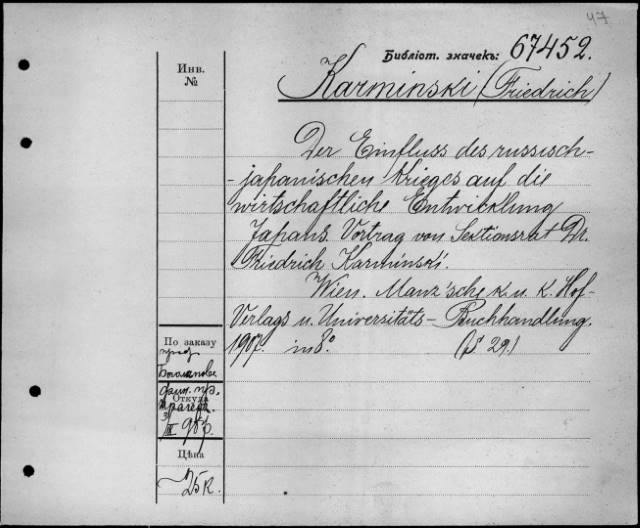 47
Библіот. значекъ: 67452.
Инв.
№
Karminski (Friedrich)
Der Einfluss des russisch-
-japanischen Krieges auf die
wirtschaftliche Entwicklung
Japans. Vortrag von Sektionsrat Dr.
Friedrich Karminski.
Wien. Manz'sche k. u. k. Hof-
Verlags u. Universitäts-Buchhandlung.
1907. in 8° (S 29.)
По заказу
проф
Откуда
III 908.
Цѣна
25 к.